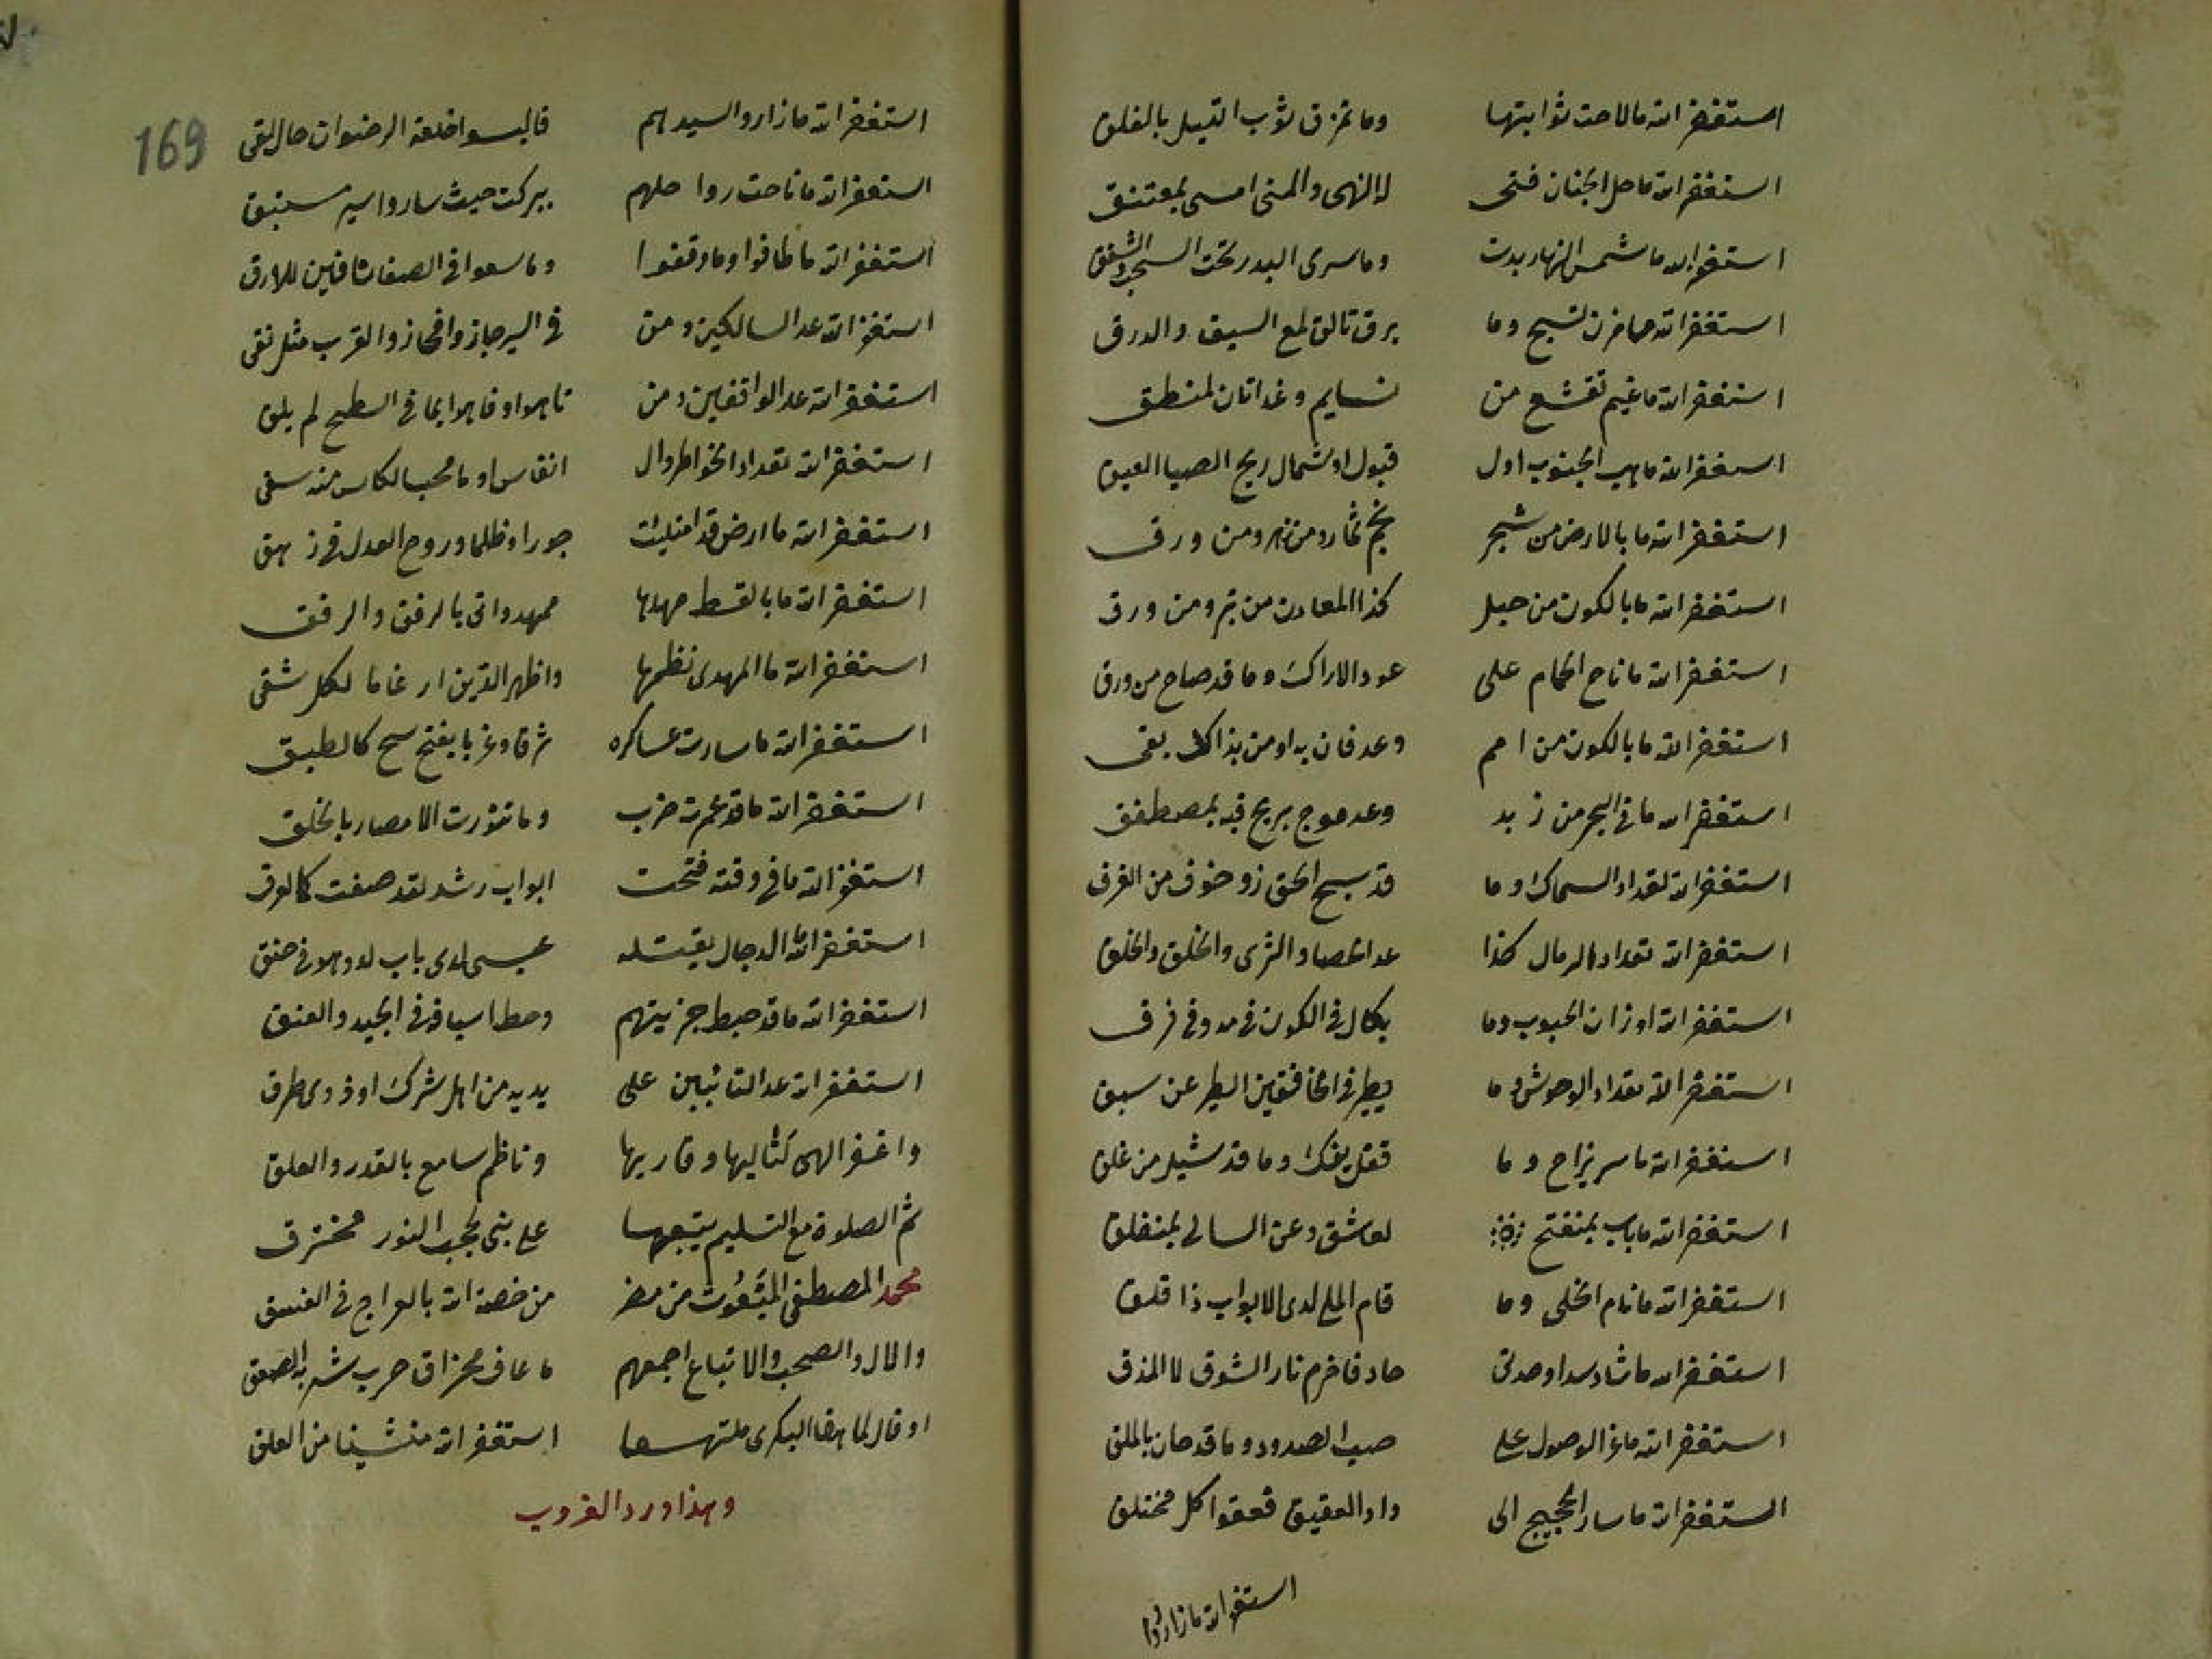 استغفر الله مالاحت ثوابتها وما تمزق ثوب الليل بالفلق
استغفر الله ما حل الجنان فتى له النهى والمنى امسى بمعتنق
استغفر الله ما شمس النهار بدت وما سرى البدر تحت السحب والشفق
استغفر الله ما مزن تسح وما برق تالق لمع السيف والدرق
استغفر الله ما غيم تقشع من نسايم وغدا
استغفر الله ما هب الجنوب اول قبول او شمال ريح الصبا العبق
استغفر الله ما بالارض من شجر نجم ثمار ومن زهر ومن ورق
استغفر الله ما بالكون من جبل كذا المعادن من تبر ومن ورق
استغفر الله ما ناح الحمام على عود الاراك وما قد صاح من ورق
استغفر الله ما بالكون من امم وعد فان به او من بذاك بقى
استغفر الله ما في البحر من زبد وعد موج بريح فيه بمصطفق
استغفر الله تعداد السماك وما قد سبح الحق ذو خوف من الغرق
استغفر الله تعداد الرمال كذا عد الحصا والثرى والخلق والخلق
استغفر الله اوزان الحبوب وما يكال في الكون في مد وفي فرق
استغفر الله تعداد الوحوش وما يطير في الخافقين الطير عن سبق
استغفر الله ما سر يزاح وما قفل يفك وما قد شيل من غلق
استغفر الله ما باب بمنفتح لعاشق وعن السالى بمنغلق
استغفر الله ما نام الخلى وما قام الملح لدى الابواب ذا قلق
استغفر الله ما شاد سدا وحدى حاد فاضرم نار الشوق لا المذق
استغفر الله ما عز الوصول على صب الصدود وما قد حان بالملق
استغفر الله ما سار الحجيج الى واد العقيق فعقوا كل مختلق
استغفر الله ما زاروا
169
استغفر الله ما زاروا لسيدهم فالبسوا خلعة الرضوان حال لقى
استغفر الله ما ناخت رواحلهم ببركت حيث ساروا سير مستبق
استغفر الله ما طافوا وما وقفوا وما سعوا في الصفا
استغفر الله عد السالكين ومن في السير جاز وانحاز والقرب مثل نقى
استغفر الله عد الواقفين ومن تاهوا وفاهوا بما في السطح لم يلق
استغفر الله تعداد الخواطر وال انفاس او ما محب الكاس منه سقى
استغفر الله ما ارض قد امتليت جورا وظلما وروح العدل في زهق
استغفر الله ما بالقسط مهدها ممهد واتى بالرفق والرفق
استغفر الله ما المهدى نظمها واظهر الدين ارغاما لكل شقى
استغفر الله ما سارت عساكره شرقا وغربا بفتح سح كالطبق
استغفر الله ما قد عمرت خرب وما تنورت الامصار بالخلق
استغفر الله ما في وقته فتحت ابواب رشد لقد صفت كالورق
استغفر الله ما الدجال يقتله عيسى لدى باب لد وهو في حنق
استغفر الله ما قد حط جزيتهم وحط اسيافه في الجيد والعنق
استغفر الله عد التائبين على يديه من اهل شرك او ذوى طرق
واغفر الهى لتاليها وقاريها وناظم سامع بالقدر والعلق
ثم الصلوة مع التسليم يتبعها على نبى لحجب النور مخترق
محمد المصطفى المبعوث من مضر من خصه الله بالمعراج في الغسق
والال والصحب والاتباع اجمعهم ما عاف محزاق حرب شربه الصعق
او قال لما هفا البكرى ملتهسعا استغفر الله منشينا من العلق
وهذا ورد الغروب